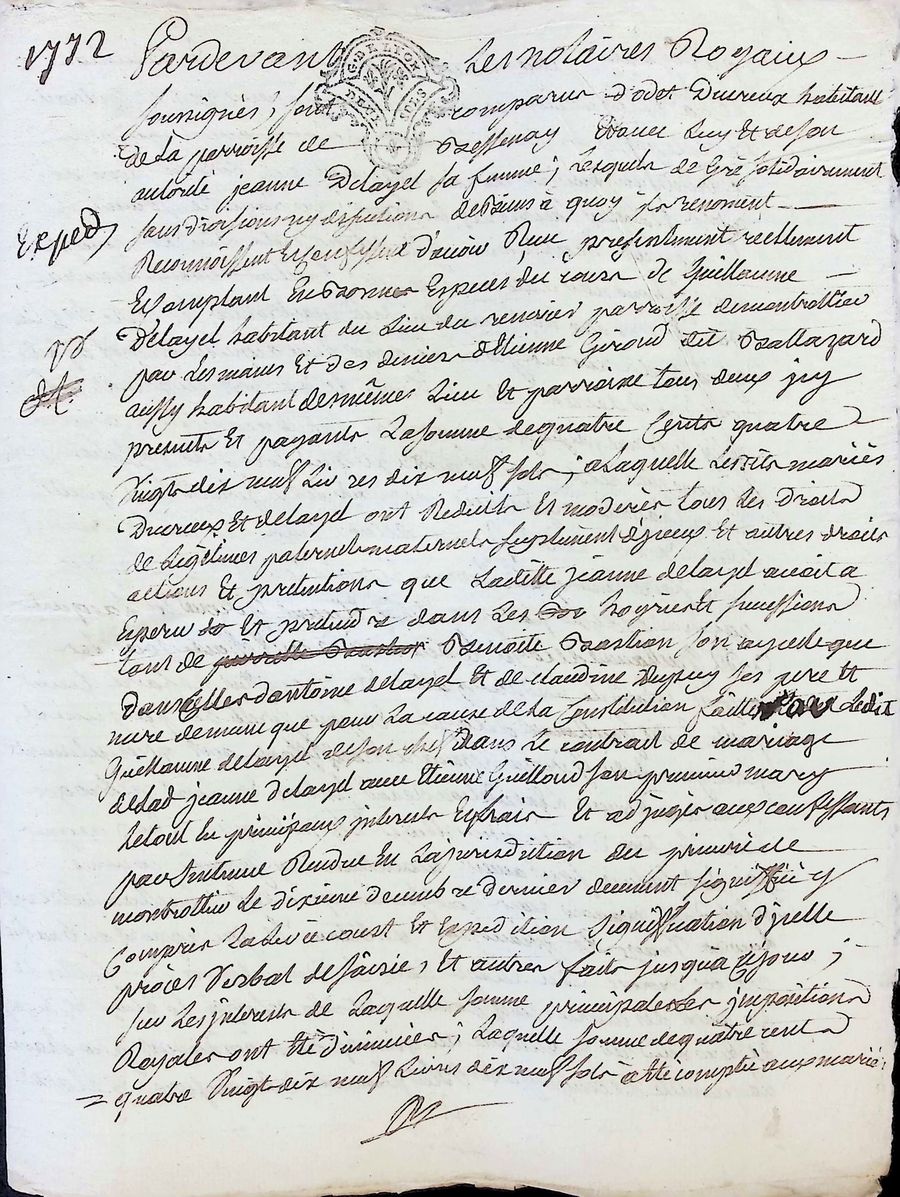 1772
Pardevant Les notaires Royaux
G. DE LYON
DEUX SOLS
soussignés, sont comparus d'odet Ducreux habitant
de La parroisse de Bessenay Et avec Luy Et de son
autorité jeanne Delayel sa femme; Lesquels de Gré solidairement
sans divisions ny discutions de biens à quoy ils renoncent
Exped
Reconnoissent Et confessent d'avoir Reçu presentement reellement
Et comptant En bonnes Especes du cours de Guillaume
Delayel habitant du Lieu du parroisse de montrottier
par Les mains Et des deniers d'Etienne Giroud dit Baltazard
aussy habitant des mêmes Lieu Et parroisse tous deux jcy
presents Et payants La somme de quatre Cents quatre
Vingts dix neuf Livres dix neuf sols; a Laquelle Lesdits mariés
Ducreux Et delayel ont Reduits Et moderés tous Les Droits
de Legitimes paternels maternels supplement d'jceux Et autres droits
actions Et pretentions que Laditte jeanne delayel avoit a
Esperer Et pretendre dans Les hoyries Et successions
tant de Benoitte Bastion son ayeulle que
dans Celles d'antoine delayel Et de claudine Dupuy ses pere Et
mere de même que pour La cause de La Constitution faitte par Ledit
Guillaume delayel de son chef dans Le contrat de mariage
de lad jeanne delayel avec Etienne Guilloud son premier mary
Le tout En principaux jnterests Et frais Et adjugés aux confessants
par Sentence Rendue En La jurisdiction du prieuré de
montrottier Le dixieme decembre dernier deuement signiffiée y
Compris La Levée court Et Expedition signiffication d'jcelle
procès Verbal de saisie, Et autres faits jusqu'à cejour;
sur Les jnterests de Laquelle somme principale Les jmpositions
Royales ont Eté diminuées; Laquelle somme de quatre cents
quatre Vingt dix neuf Livres dix neuf sols a Eté comptée aux mariés